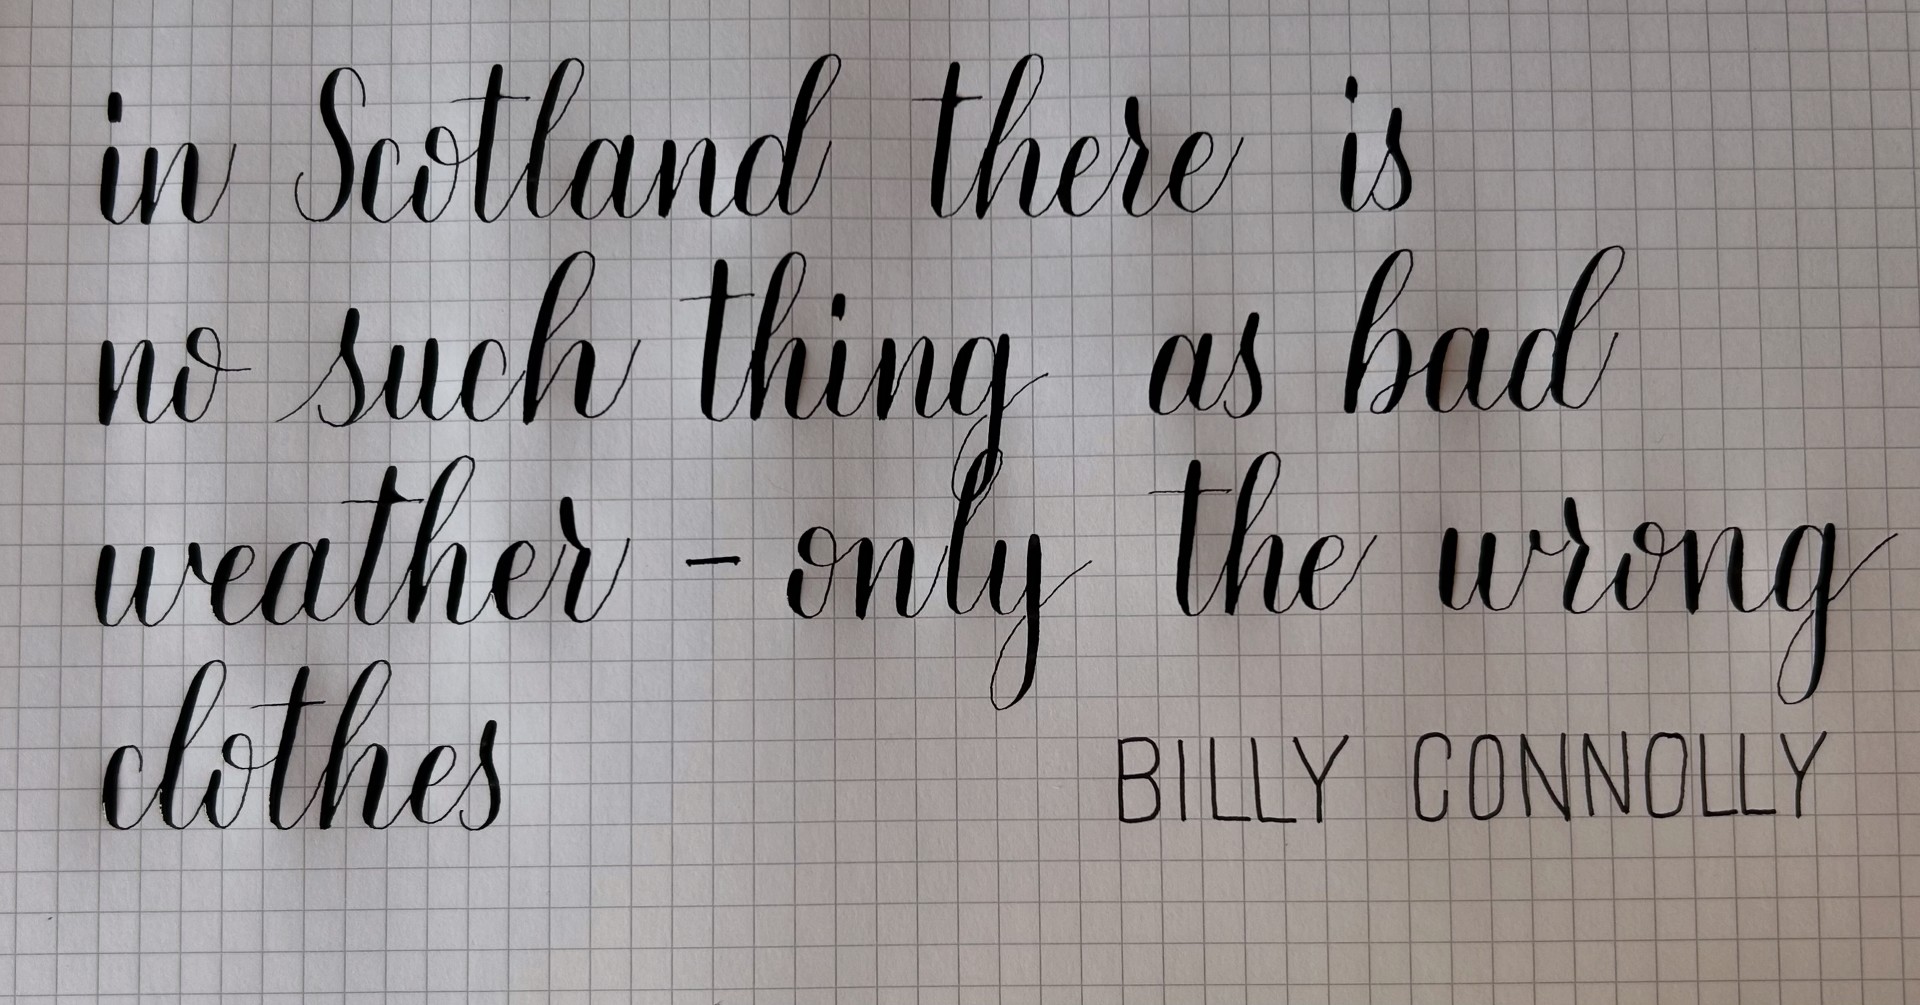 in Scotland there is
no such thing as bad
weather - only the wrong
clothes
BILLY CONNOLLY